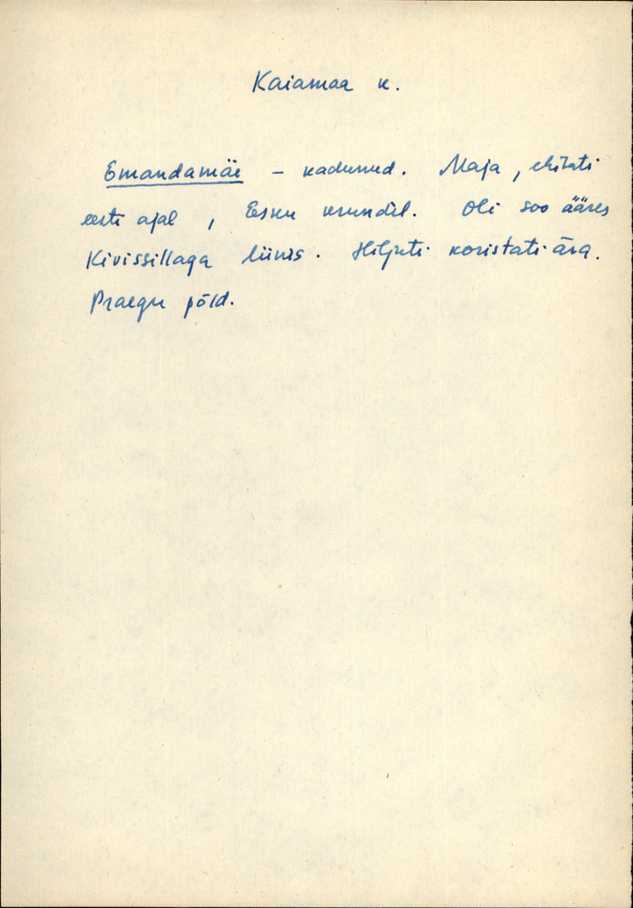 Kaiamaa k.
Emandamäe – kadunud. Maja, ehitati
eesti ajal, Esku krundil. Oli soo ääres
Kivissillaga liinis. Hiljuti koristati ära.
Praegu põld.